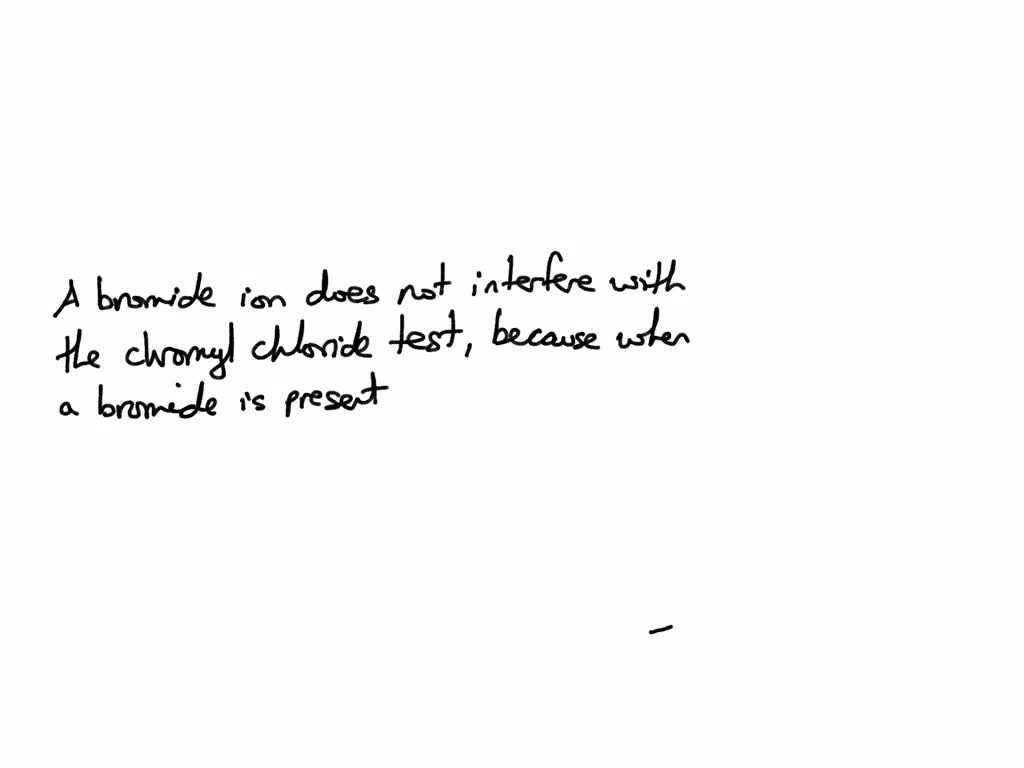 A bromide ion does not interfere with
the chromyl chloride test, because when
a bromide is present